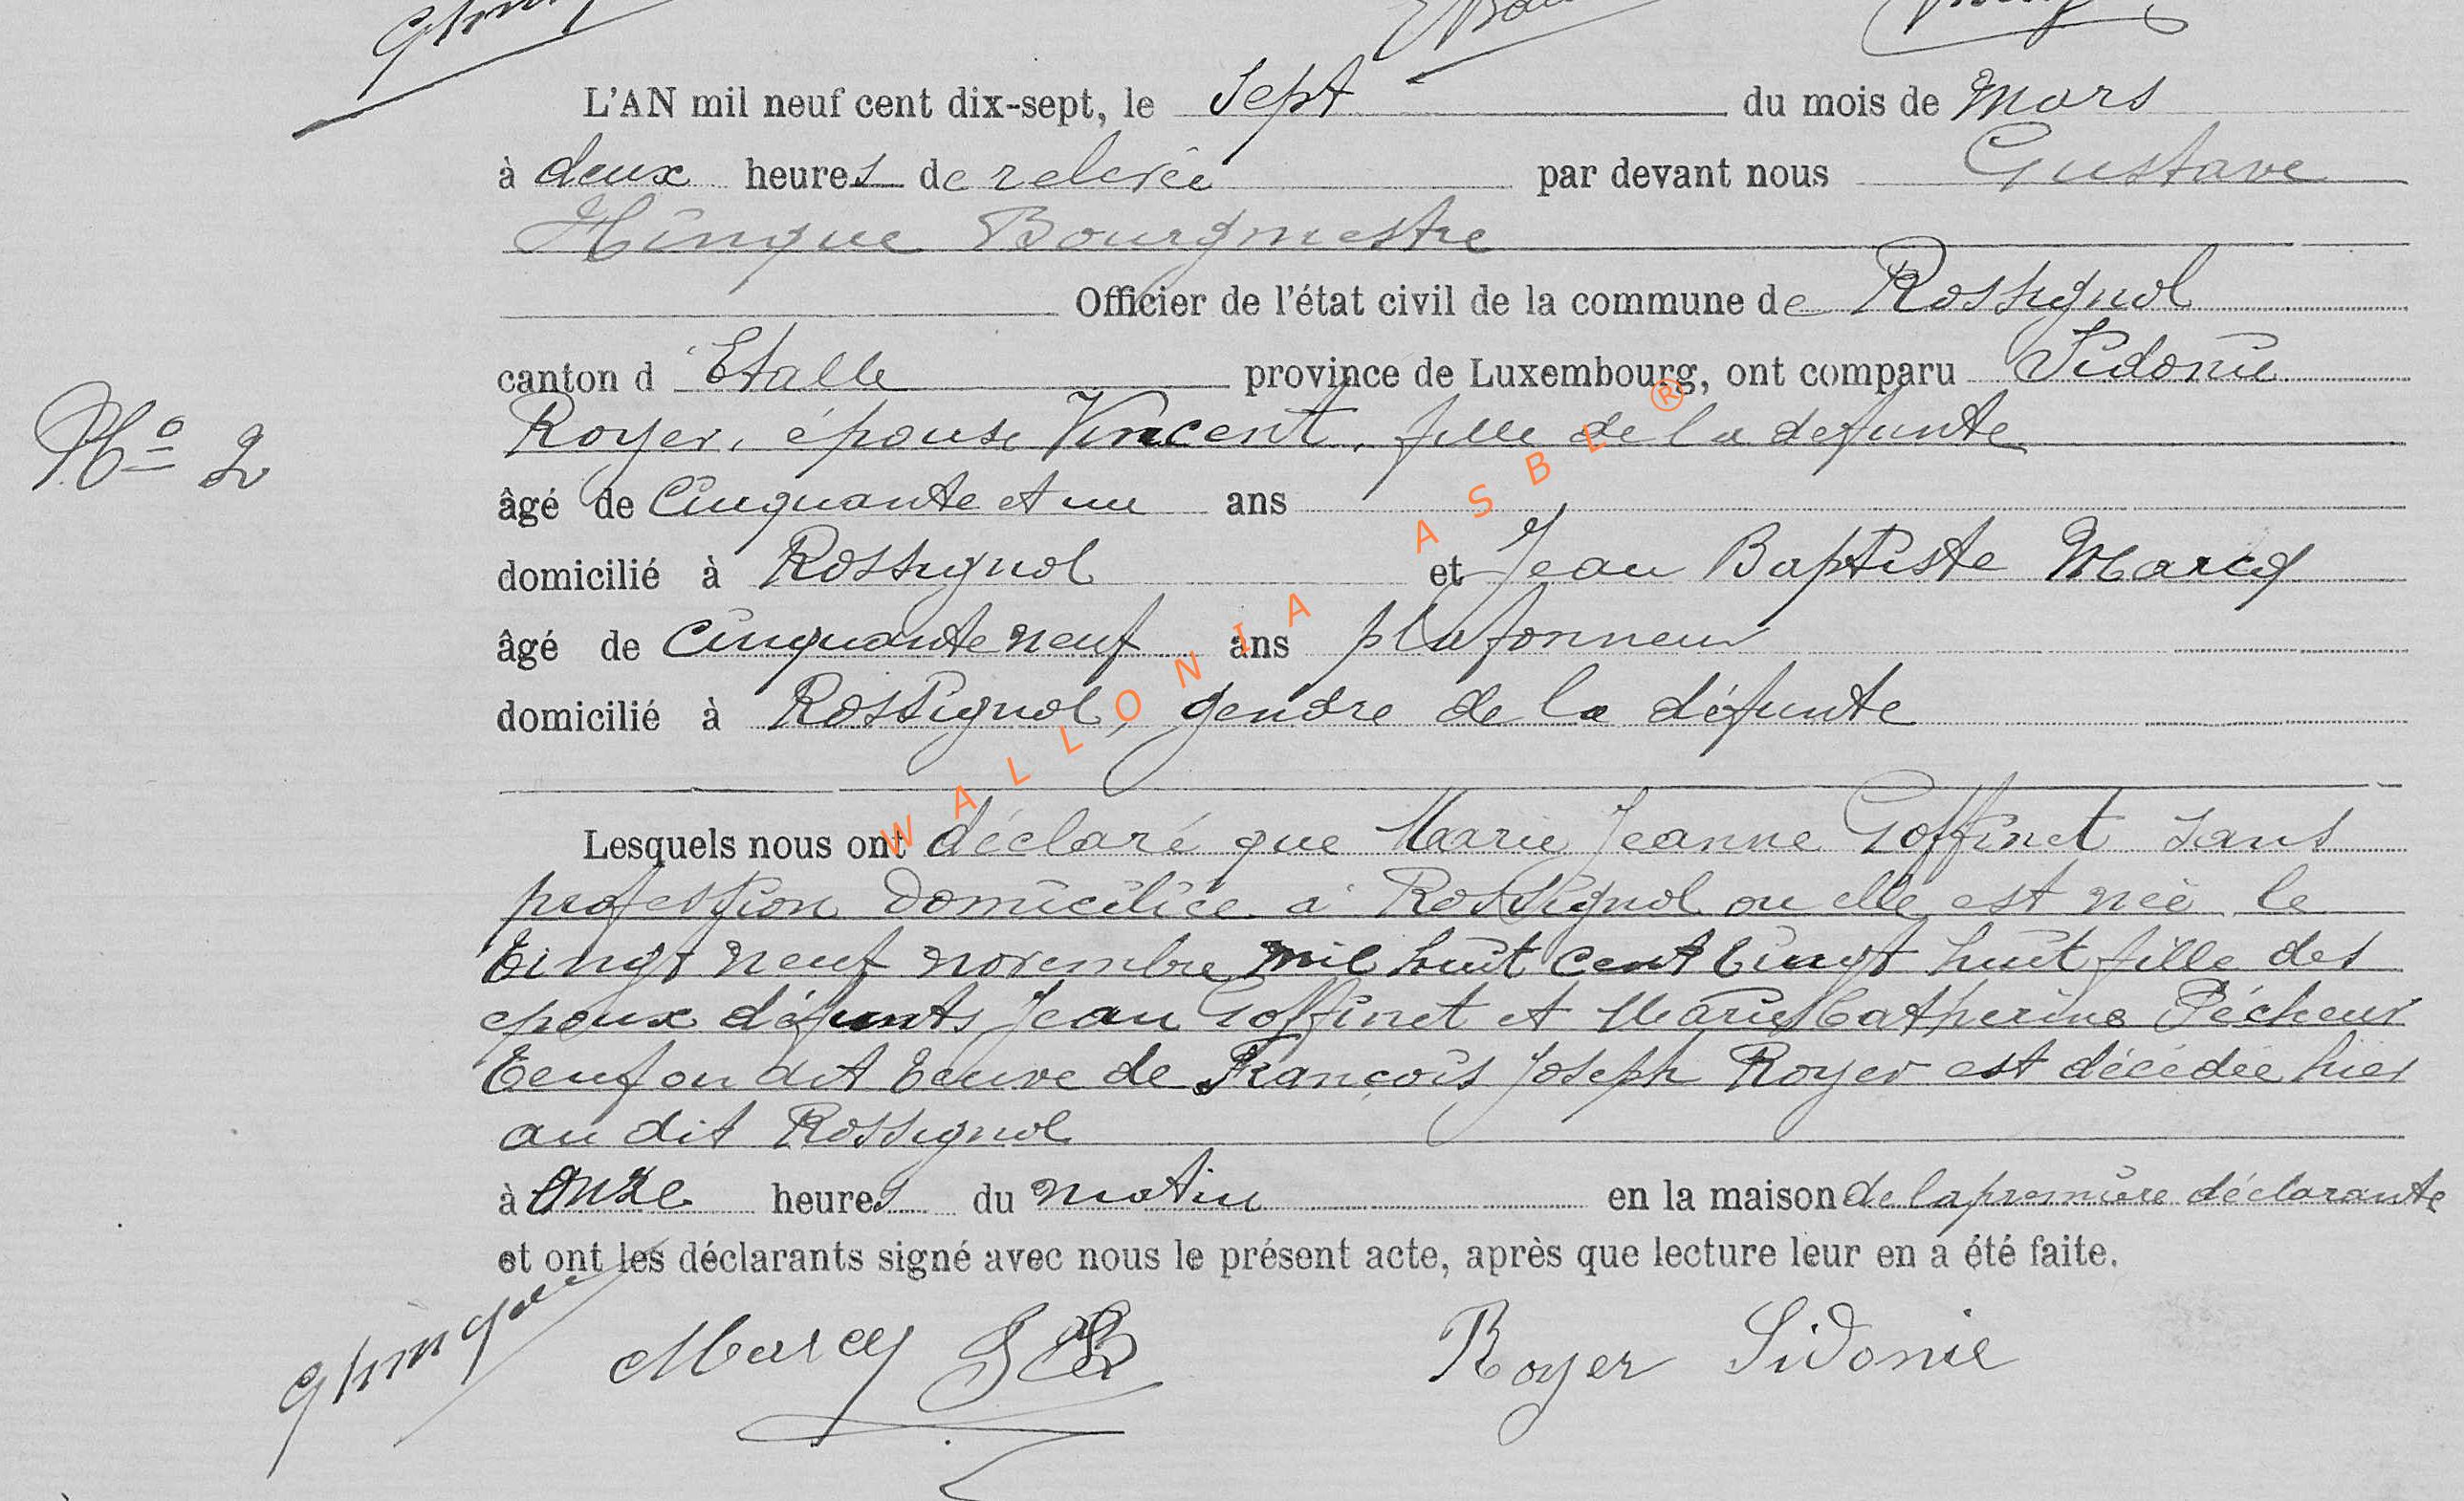 L'AN mil neuf cent dix-sept, le sept du mois de Mars
à deux heures de relevée par devant nous Gustave
Hinque Bourgmestre
Officier de l'état civil de la commune de Rossignol
canton d'Etalle province de Luxembourg, ont comparu Sidonie
Royer, épouse Vincent, fille de la defunte
N° 2
âgé de Cinquante et un ans
domicilié à Rossignol et Jean Baptiste Marcq
âgé de Cinquante neuf ans plafonneur
domicilié à Rossignol, gendre de la défunte
Lesquels nous ont déclaré que Marie Jeanne Goffinet sans
profession domiciliée à Rossignol ou elle est née le
Vingt neuf novembre mil huit cent vingt huit fille des
epoux défunts Jean Goffinet et Marie Catherine Pécheur
veuf on dit veuve de François Joseph Royer est décédée hier
au dit Rossignol
à onze heures du matin en la maison de la première déclarante
et ont les déclarants signé avec nous le présent acte, après que lecture leur en a été faite.
GHinque Marcq JB Royer Sidonie
WALLONIA ASBL ®